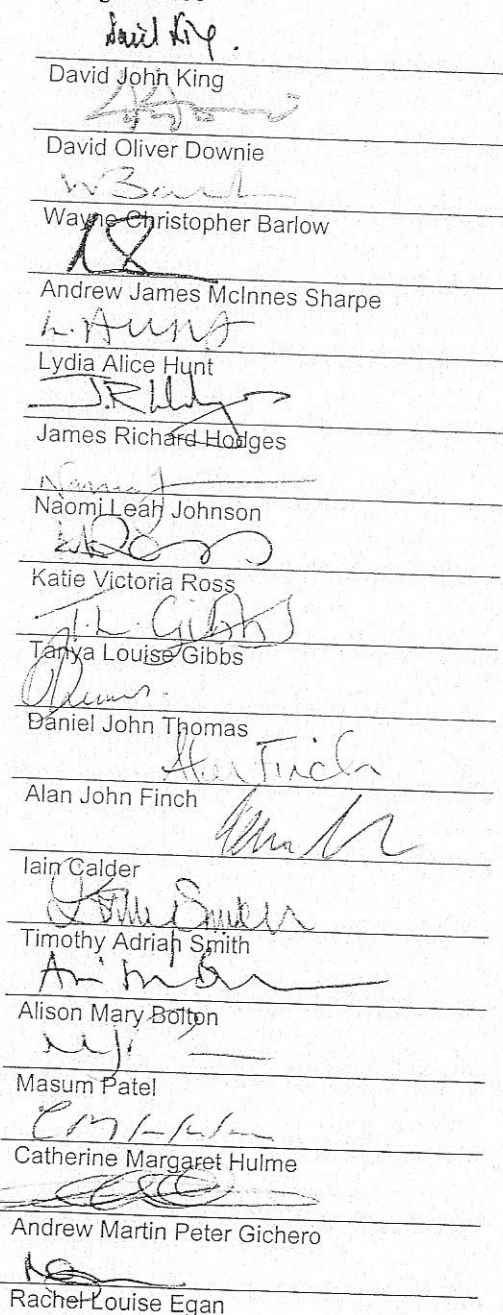 David King.
David John King
David Oliver Downie
W Barl
Wayne Christopher Barlow
Andrew James McInnes Sharpe
L. A Hunt
Lydia Alice Hunt
J.R Hodges
James Richard Hodges
Naomi J
Naomi Leah Johnson
Katie Victoria Ross
T. L. Gibbs
Tanya Louise Gibbs
Daniel John Thomas
Alan Finch
Alan John Finch
Iain Calder
Timothy Adrian Smith
Alison Mary Bolton
Masum Patel
Catherine Margaret Hulme
Andrew Martin Peter Gichero
Rachel Louise Egan